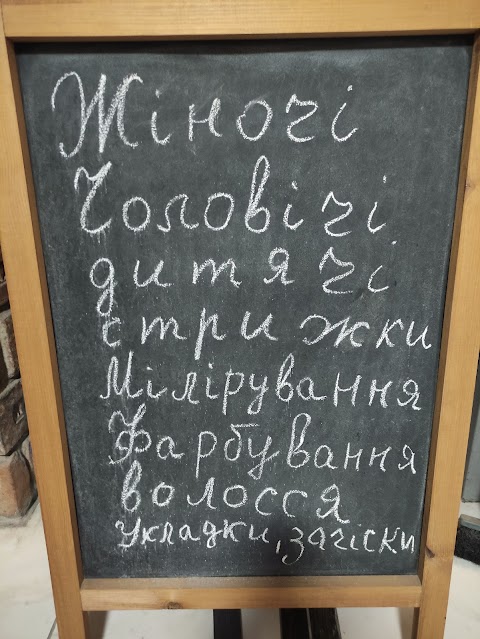 Жіночі
Чоловічі
дитячі
стрижки
Мілірування
Фарбування
волосся
Укладки, зачіски